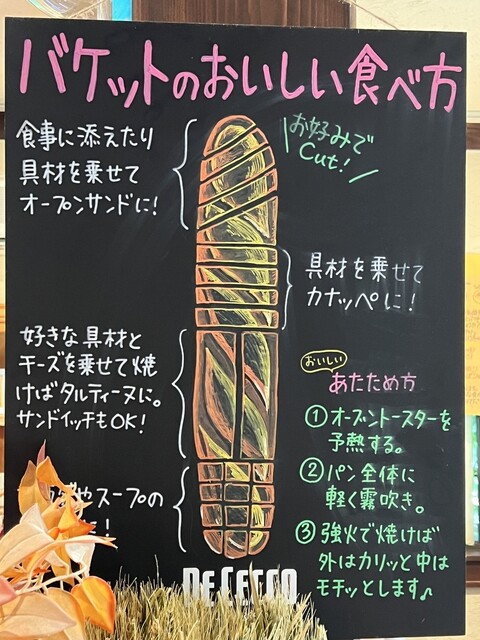 バケットのおいしい食べ方
食事に添えたり
具材を乗せて
オープンサンドに!
お好みで
Cut!
具材を乗せて
カナッペに!
好きな具材と
チーズを乗せて焼
けばタルティーヌに。
サンドイッチもOK!
やスープの
!
おいしい
あたため方
① オーブントースターを
予熱する。
② パン全体に
軽く霧吹き。
③ 強火で焼けば
外はカリッと中は
モチッとします♪
DE CECCO